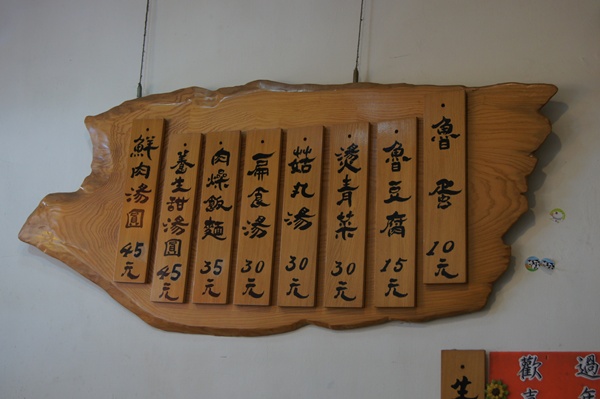 魯蛋10元
魯豆腐15元
燙青菜30元
菇丸湯30元
扁食湯30元
肉燥飯麵35元
養生甜湯圓45元
鮮肉湯圓45元
過年
歡喜
生